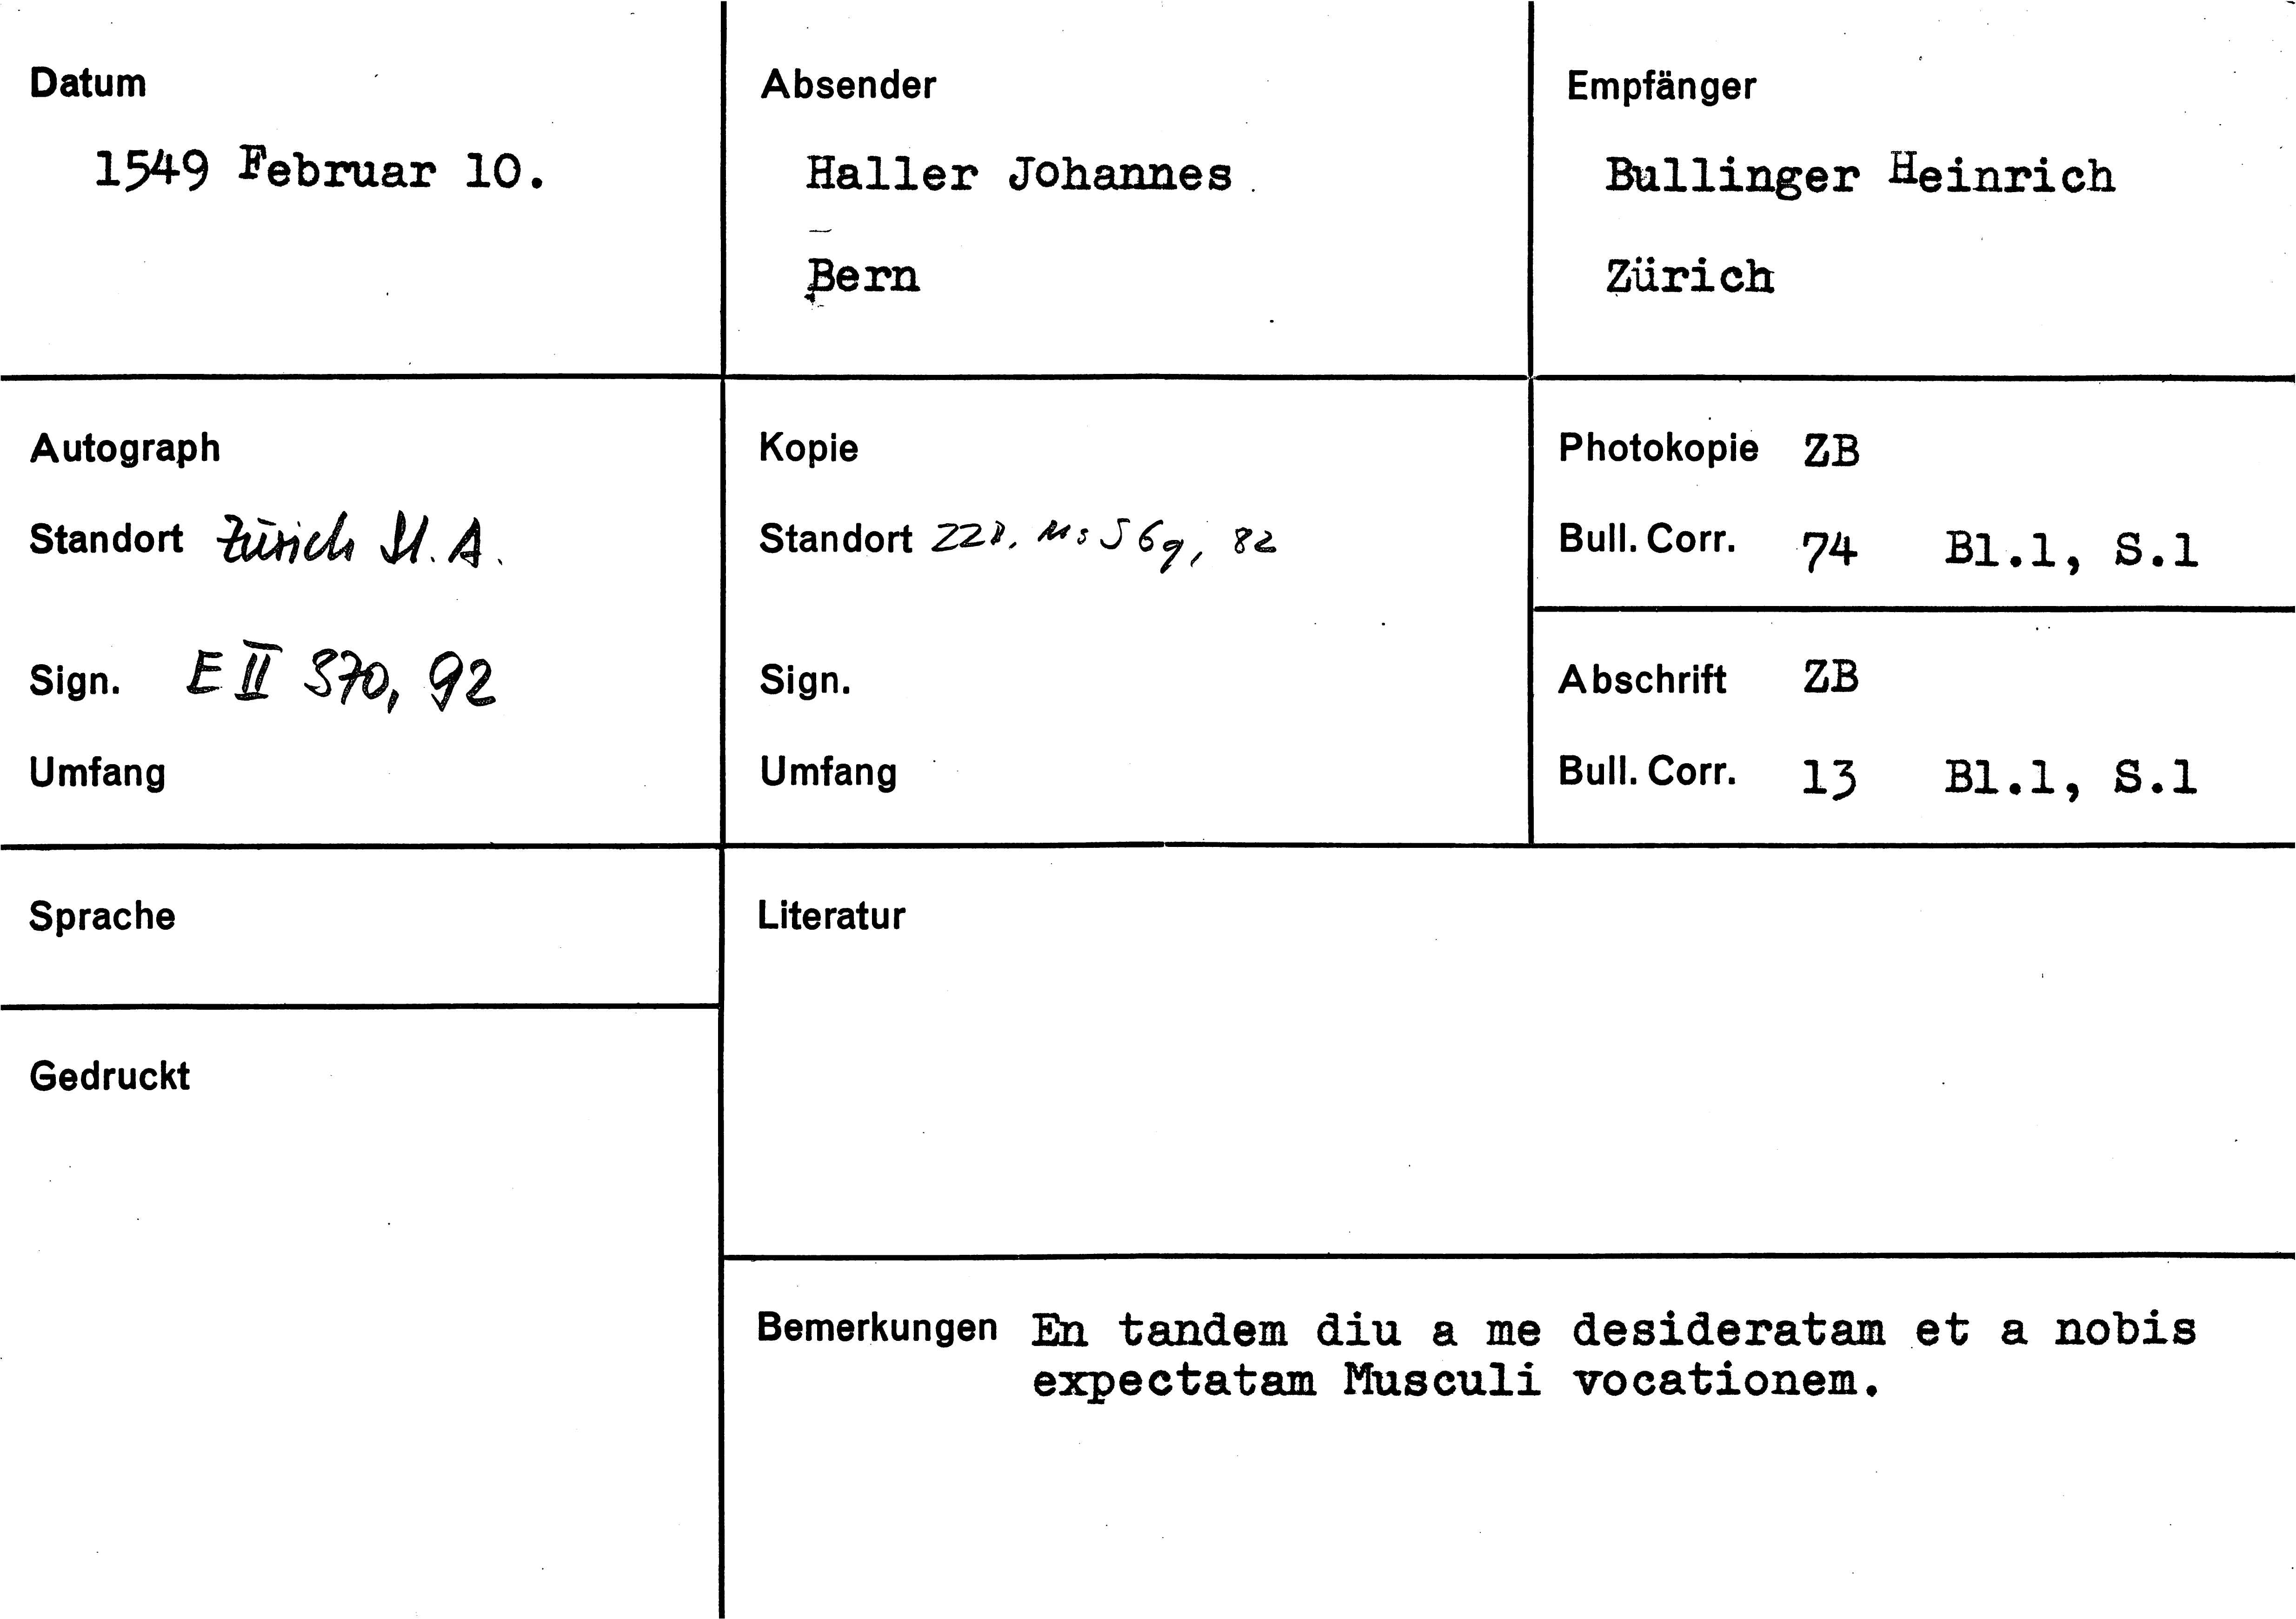 Datum
1549 Februar 10.
Absender
Haller Johannes
Bern
Empfänger
Bullinger Heinrich
Zürich
Autograph
Standort Zürich St. A.
Sign. E II 370, 92
Umfang
Kopie
Standort ZZB, Ms S 69, 82
Sign.
Umfang
Photokopie ZB
Bull. Corr. 74 Bl.1, S.1
Abschrift ZB
Bull. Corr. 13 Bl.1, S.1
Sprache
Gedruckt
Literatur
Bemerkungen En tandem diu a me desideratam et a nobis
expectatam Musculi vocationem.